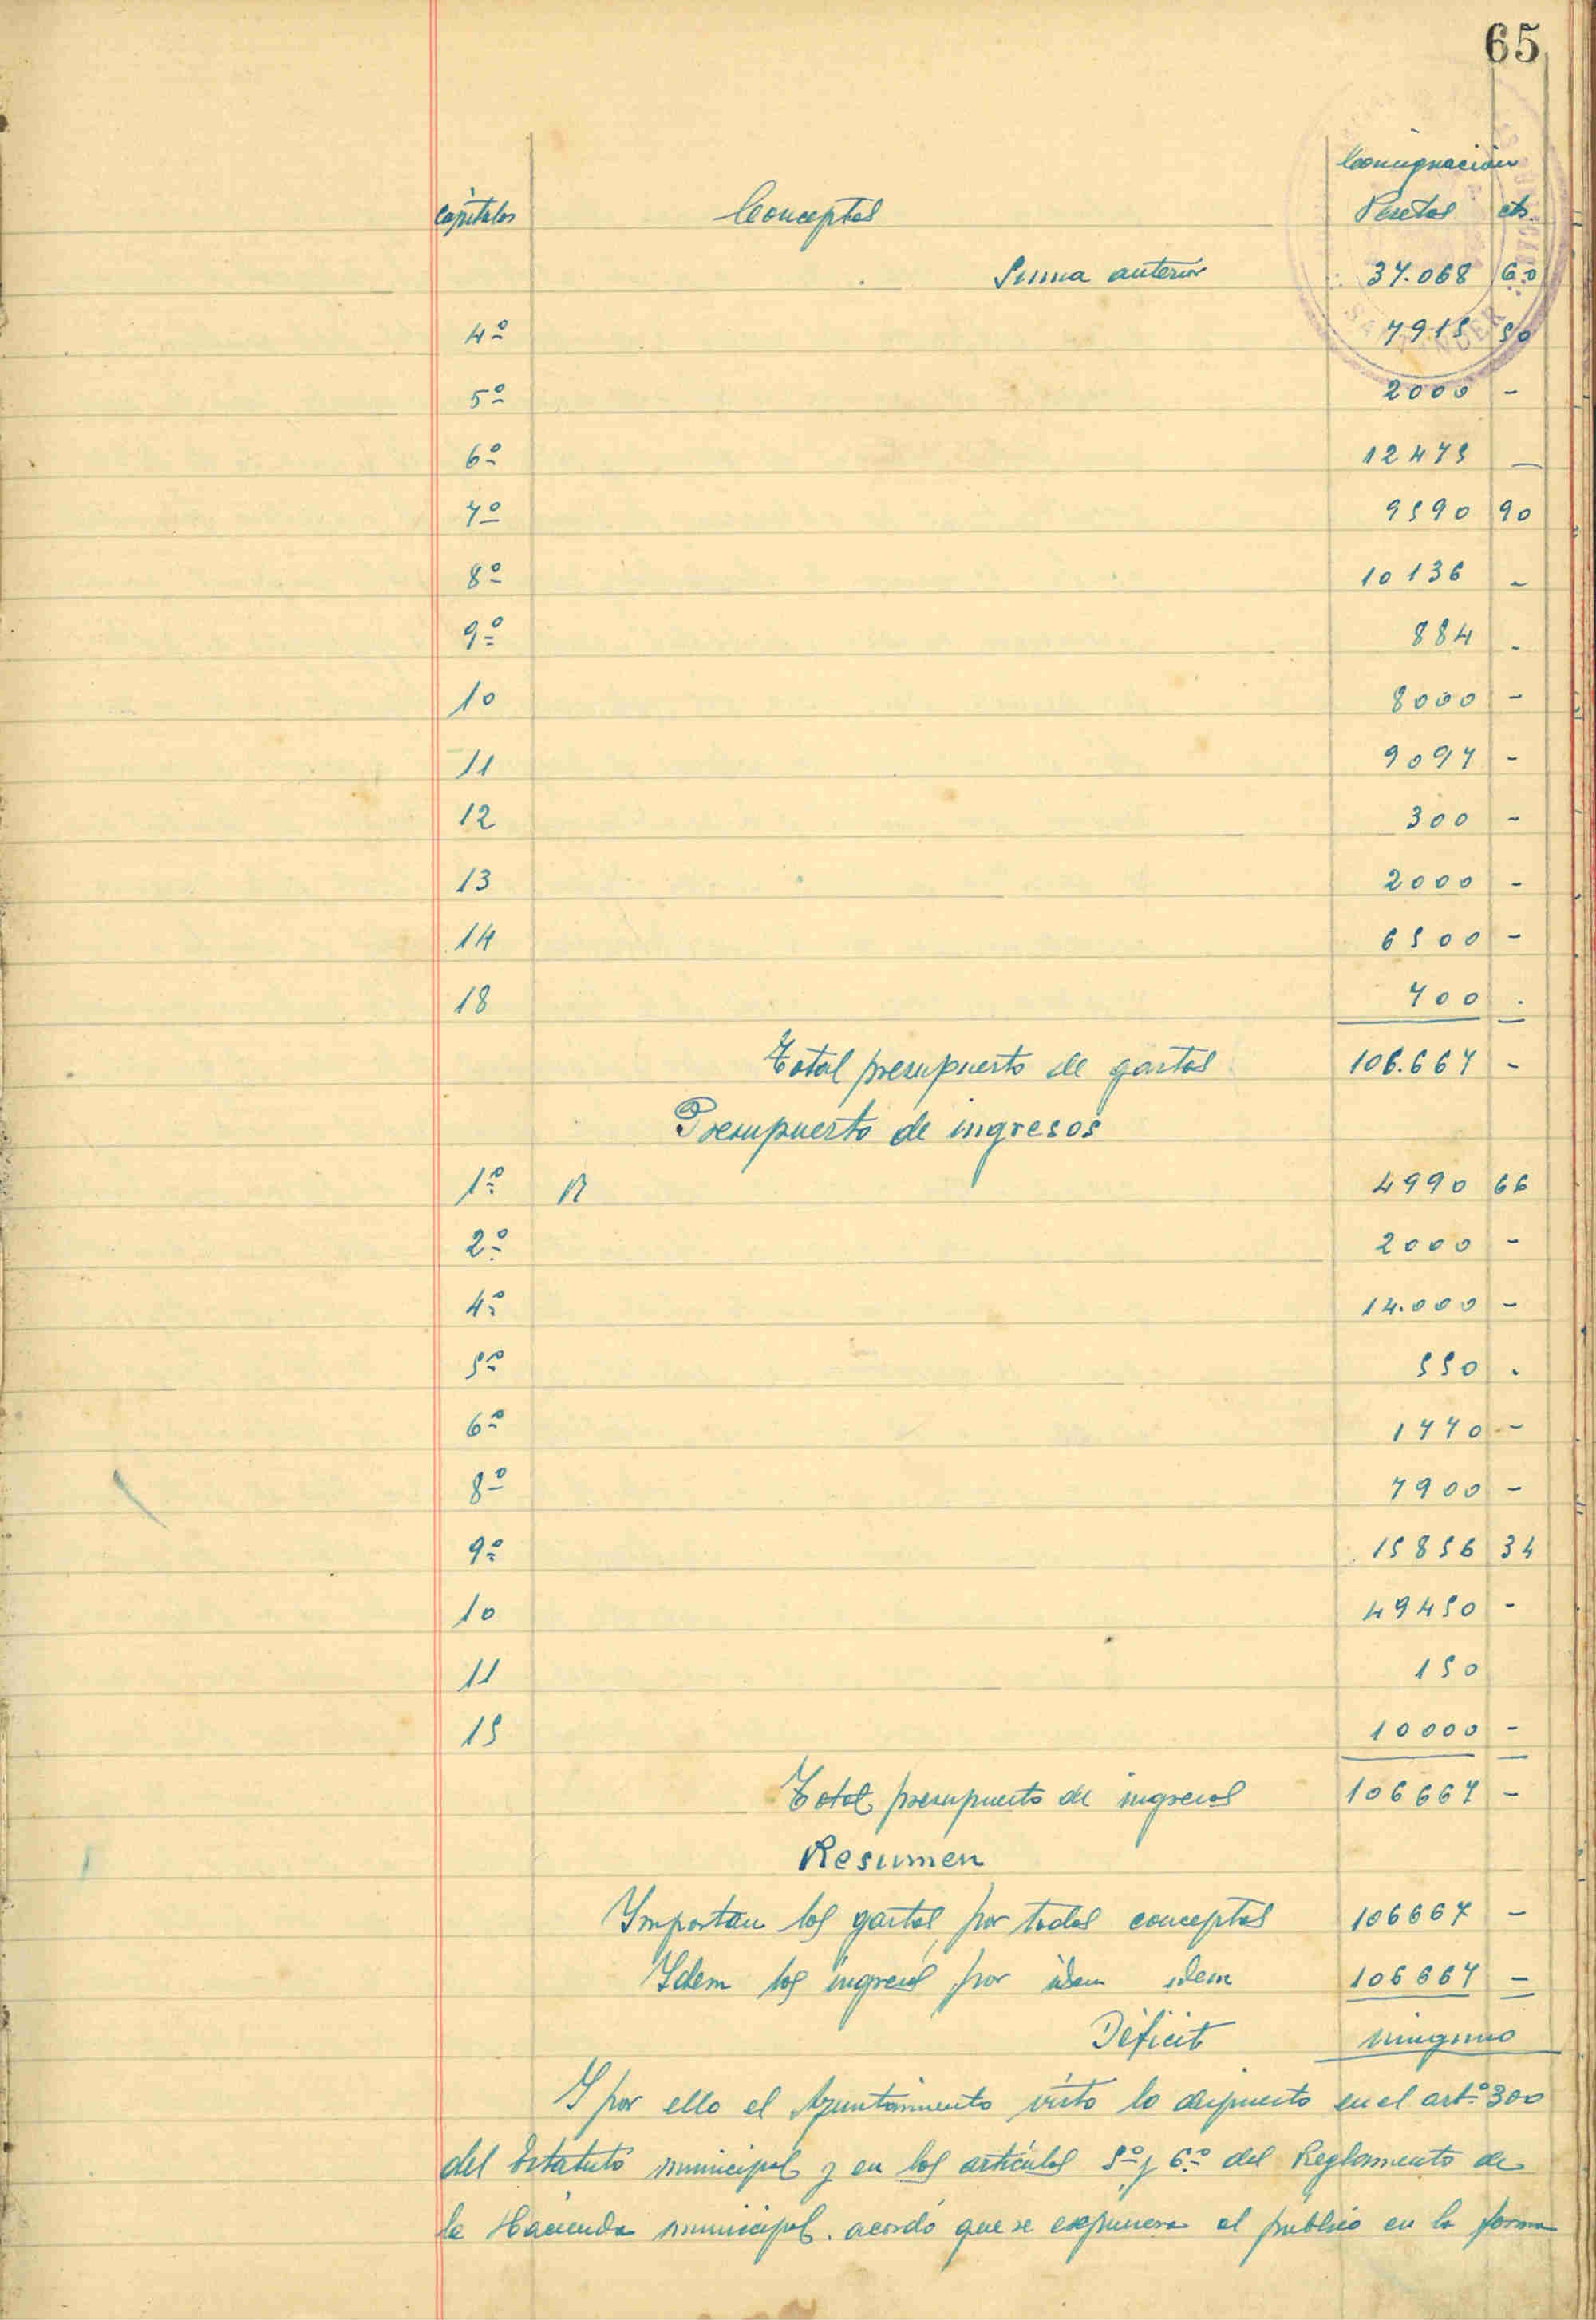 65
Consignación
Capítulos Conceptos Pesetas cts.
Suma anterior 37.068 60
4º 7915 50
5º 2000 -
6º 12475 -
7º 9590 90
8º 10136 -
9º 884 -
10 8000 -
11 9097 -
12 300 -
13 2000 -
14 6500 -
18 700 .
Total presupuesto de gastos 106.667 -
Presupuesto de ingresos
1º R 4990 66
2º 2000 -
4º 14.000 -
5º 550 .
6º 1770 -
8º 7900 -
9º 15856 34
10 49450 -
11 150
15 10000 -
Total presupuesto de ingresos 106667 -
Resumen
Importan los gastos, por todos conceptos 106667 -
Idem los ingresos por idem idem 106667 -
Déficit ninguno
Y por ello el Ayuntamiento visto lo dispuesto en el artº 300
del Estatuto municipal y en los artículos 5º y 6º del Reglamento de
la Hacienda municipal. acordó que se expusiera al público en la forma
SANTANDER